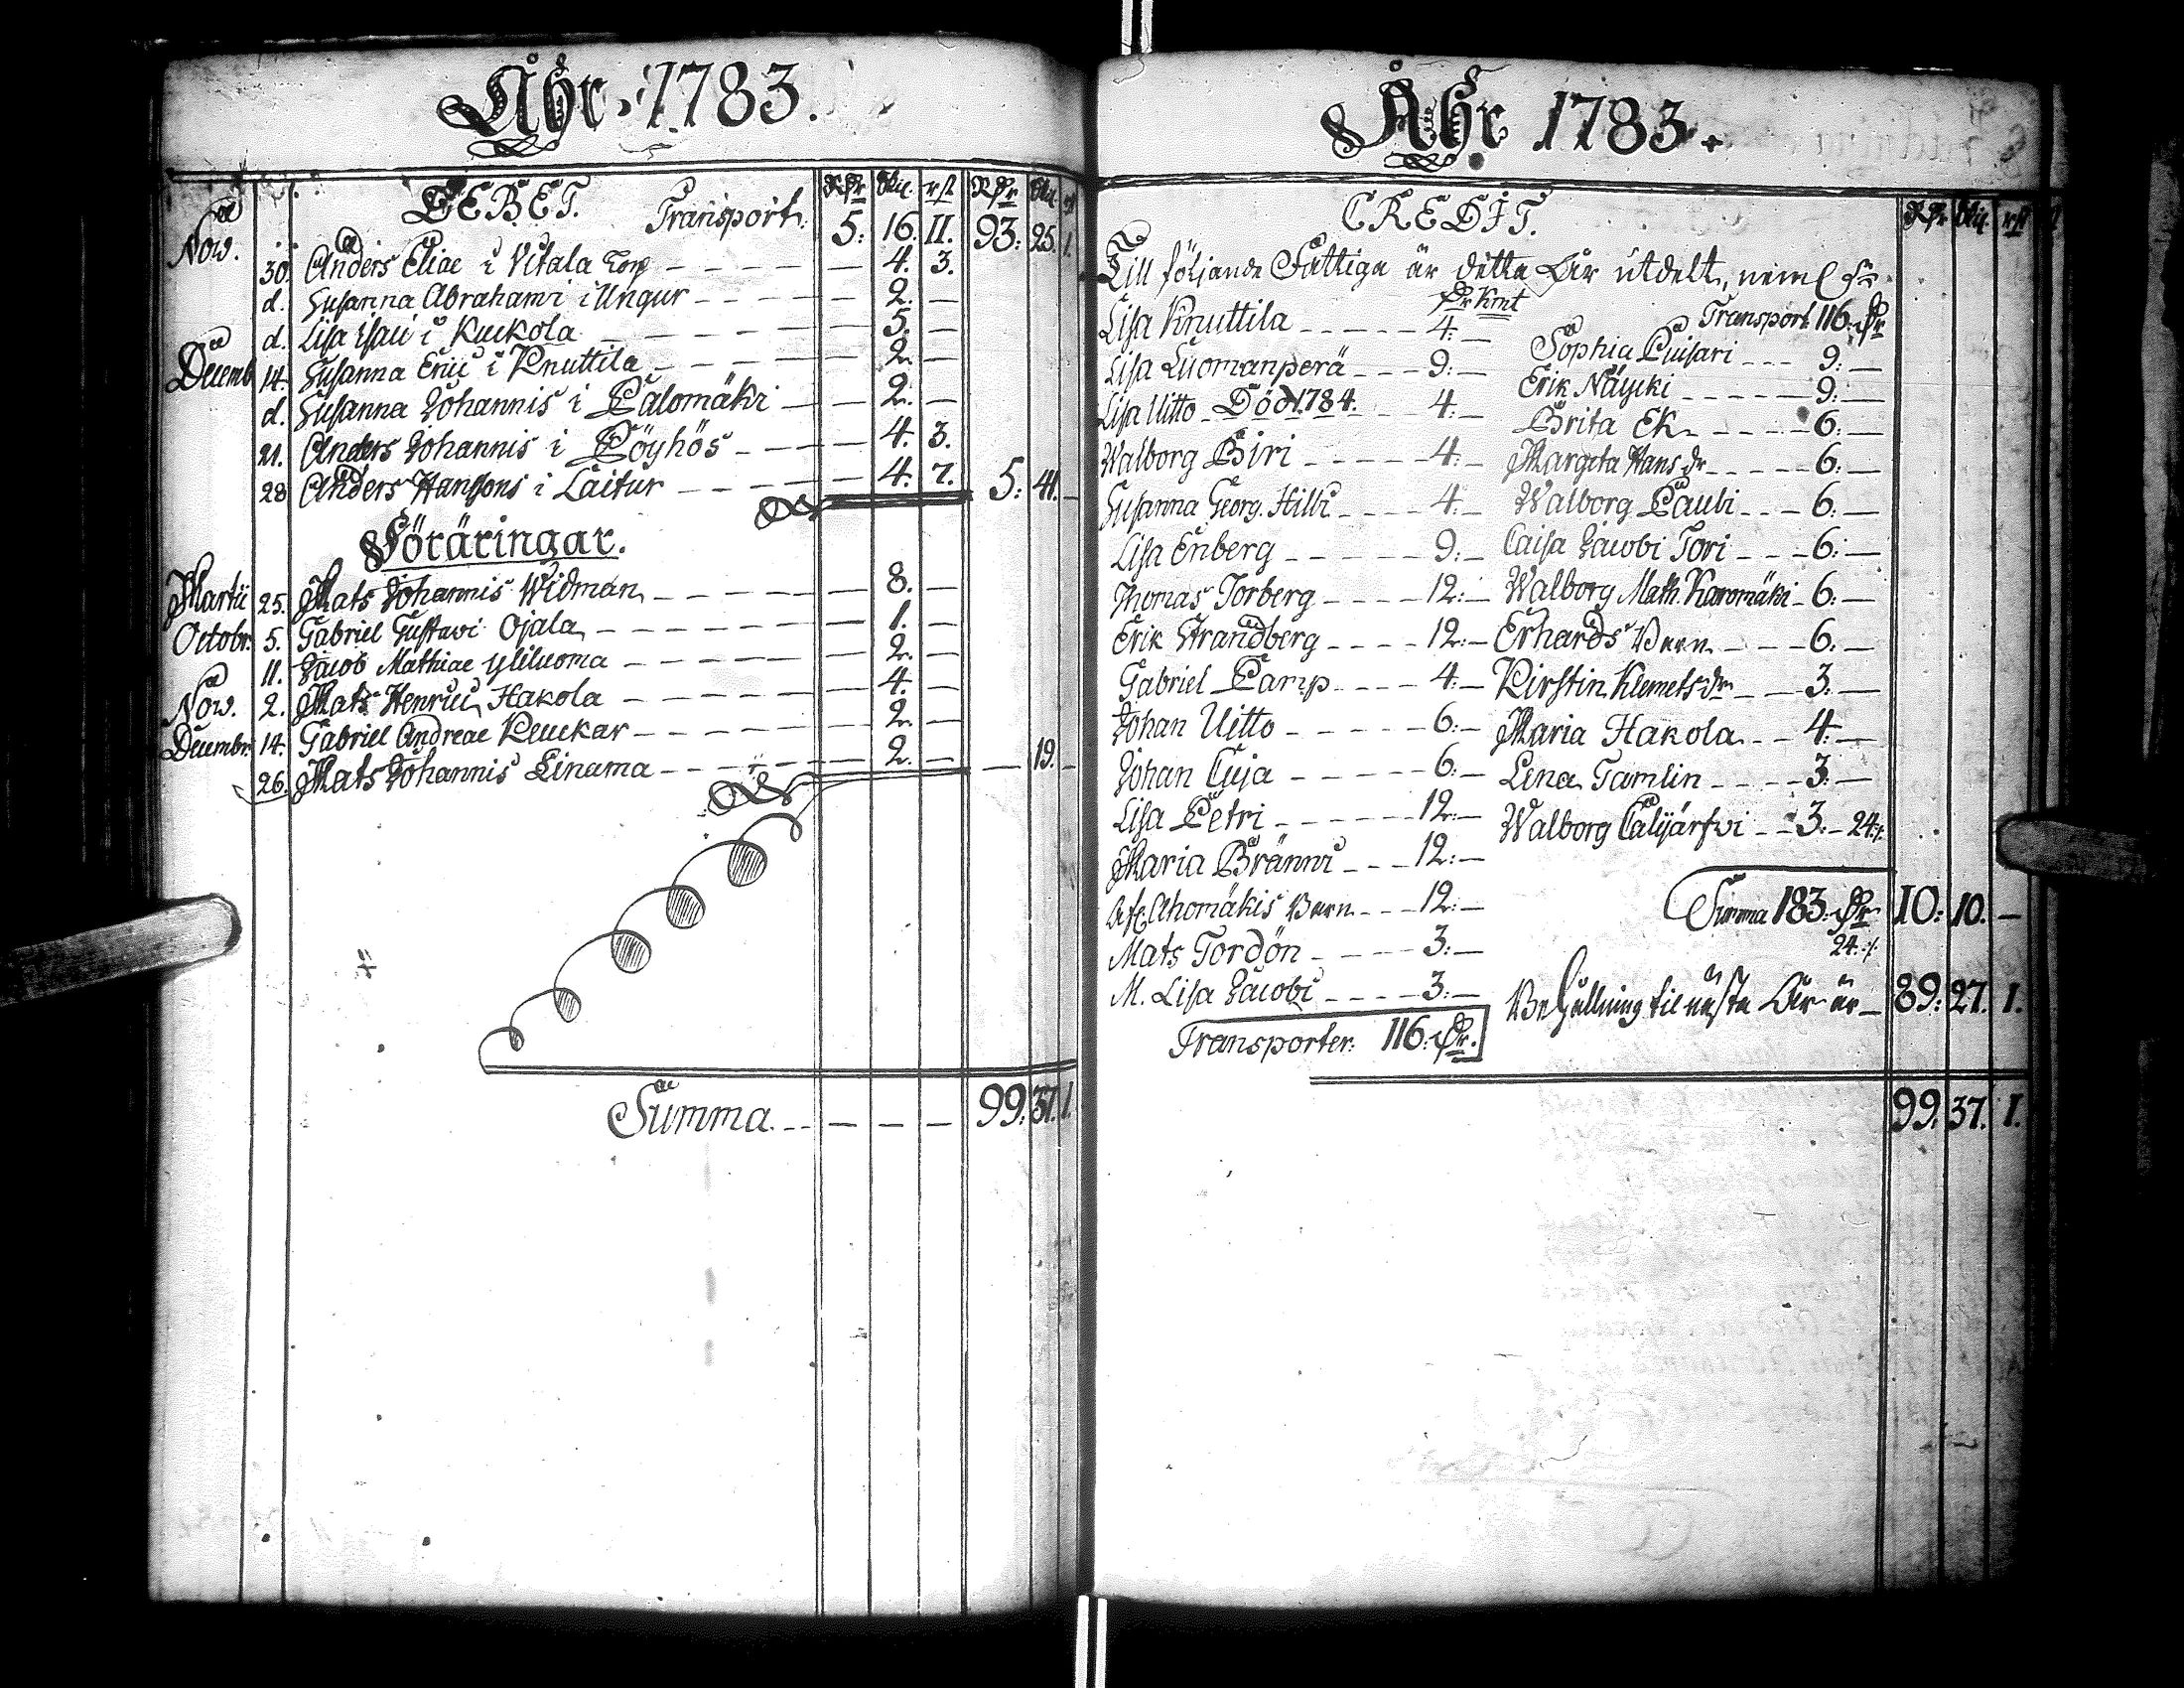 Åhr 1783.
DEBET. Transport. Rdr Skil. rst Rdr Skil. rst
5: 16. 11. 93: 25. 1.
Nov. 30. Anders Eliae i Vitala Torp — 4. 3.
d. Susanna Abrahami i Ungur — 2. —
d. Lisa Esaii i Kuckola — 5. —
Decemb 14. Susanna Erici i Knuttila — 2. —
d. Susanna Johannis i Palomäki — 2. —
21. Anders Johannis i Pöyhös — 4. 3.
28 Anders Hanssons i Laitur — 4. 7. 5: 41. —
Föräringar.
Martii 25. Mats Johannis Widman — 8. —
Octobr. 5. Gabriel Gustavi Ojala — 1. —
11. Jacob Mathiae Yliluoma — 2. —
Nov. 2. Mats Henrici Hakola — 4. —
Decembr. 14. Gabriel Andreae Kleuckar — 2. —
26. Mats Johannis Linama — 2. — — 19. —
Summa — — — 99: 37. 1.
Åhr 1783.
CREDIT. Rdr Skil. rst
Till följande Fattiga är detta År utdelt, neml
Dr Kmt
Lisa Knuttila — 4: —
Lisa Luomanperä — 9: —
Lisa Uitto Död 1784. — 4: —
Walborg Biri — 4: —
Susanna Georg. Hilli — 4: —
Lisa Enberg — 9: —
Thomas Torberg — 12: —
Erik Strandberg — 12: —
Gabriel Camp — 4: —
Johan Uitto — 6: —
Johan Cuja — 6: —
Lisa Petri — 12: —
Maria Bränni — 12: —
Afl. Ahomäkis Barn — 12: —
Mats Tordön — 3: —
M. Lisa Jacobi — 3: —
Transporter: 116: Dr.
Transport 116: Dr
Sophia Puisari — 9: —
Erik Näycki — 9: —
Brita Ek — 6: —
Margeta Hans dr — 6: —
Walborg Paubi — 6: —
Caisa Jacobi Tori — 6: —
Walborg Math. Karomäki — 6: —
Erhards Barn — 6: —
Kirstin Klemets dr — 3: —
Maria Hakola — 4: —
Lena Tamlin — 3: —
Walborg Calijärfvi — 3: — 24:
Summa 183: Dr 10: 10. —
24:
Behållning til nästa År är — 89: 27. 1.
99: 37. 1.